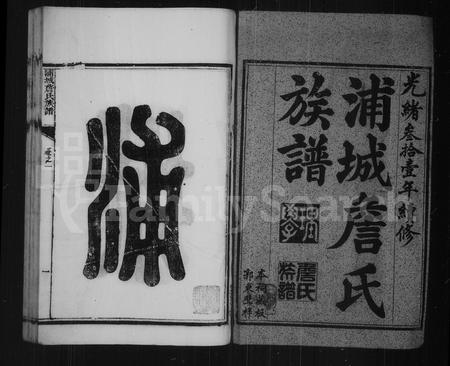 光緒叄拾壹年續修
浦城詹氏
族譜
詹氏
族譜
本祠藏板
浦
浦城詹氏族譜
卷之一
FamilySearch